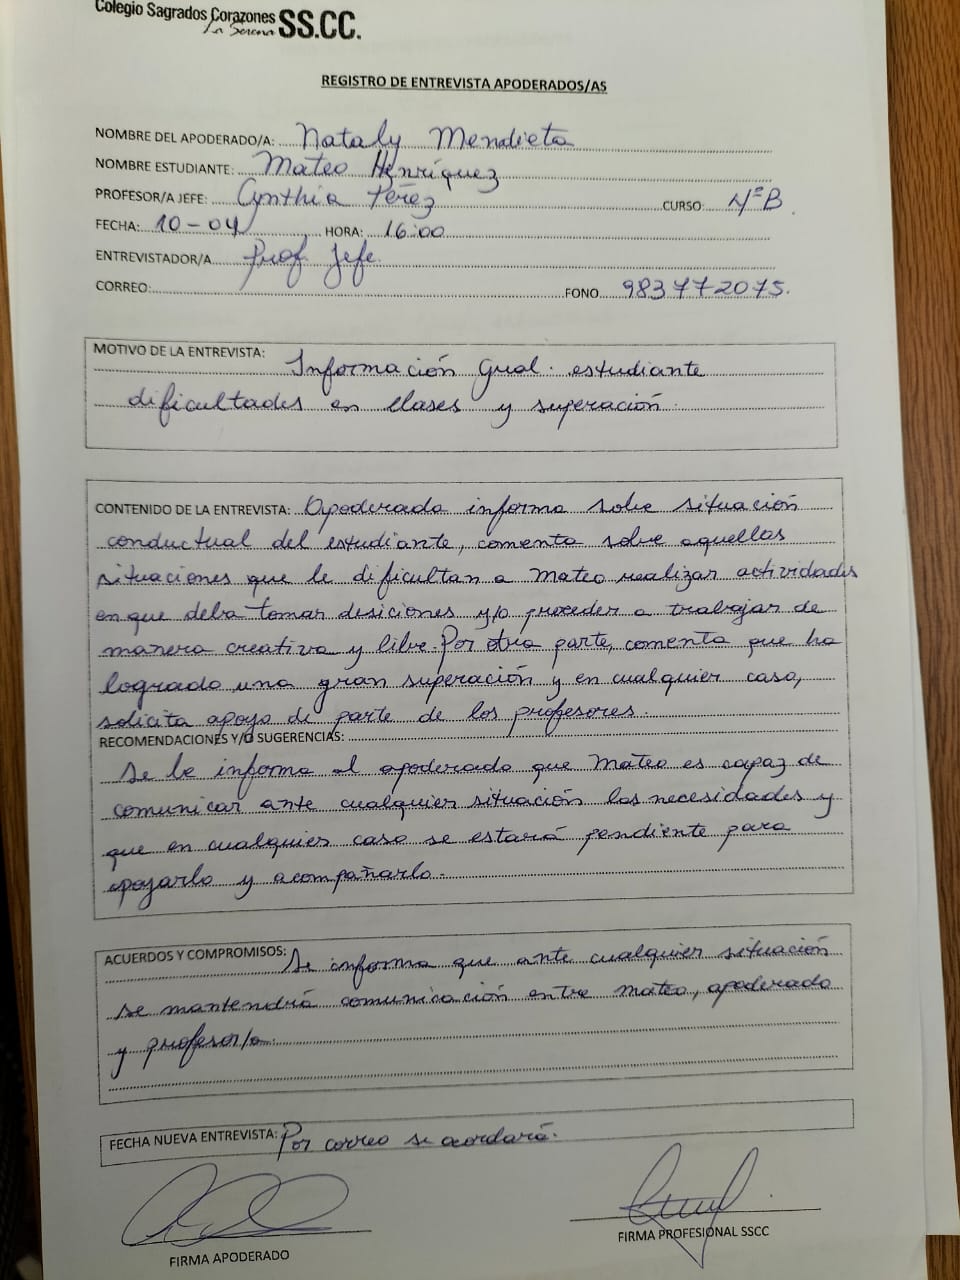 Colegio Sagrados Corazones SS.CC.
La Serena
REGISTRO DE ENTREVISTA APODERADOS/AS
NOMBRE DEL APODERADO/A: Nataly Mendieta
NOMBRE ESTUDIANTE: Mateo Henríquez
PROFESOR/A JEFE: Cynthia Pérez CURSO: 4°B
FECHA: 10-04 HORA: 16:00
ENTREVISTADOR/A Prof. Jefe.
CORREO: FONO 983772075.
MOTIVO DE LA ENTREVISTA: Información Gral. estudiante
dificultades en clases y superación.
CONTENIDO DE LA ENTREVISTA: Apoderada informa sobre situación
conductual del estudiante, comenta sobre aquellas
situaciones que le dificultan a Mateo realizar actividades
en que deba tomar desiciones y/o proceder a trabajar de
manera creativa y libre. Por otra parte, comenta que ha
logrado una gran superación y en cualquier caso,
solicita apoyo de parte de los profesores.
RECOMENDACIONES Y/O SUGERENCIAS:
Se le informa al apoderado que Mateo es capaz de
comunicar ante cualquier situación las necesidades y
que en cualquier caso se estará pendiente para
apoyarlo y acompañarlo.
ACUERDOS Y COMPROMISOS: Se informa que ante cualquier situación
se mantendrá comunicación entre Mateo, apoderado
y profesor/a.
FECHA NUEVA ENTREVISTA: Por correo se acordará.
FIRMA APODERADO FIRMA PROFESIONAL SSCC